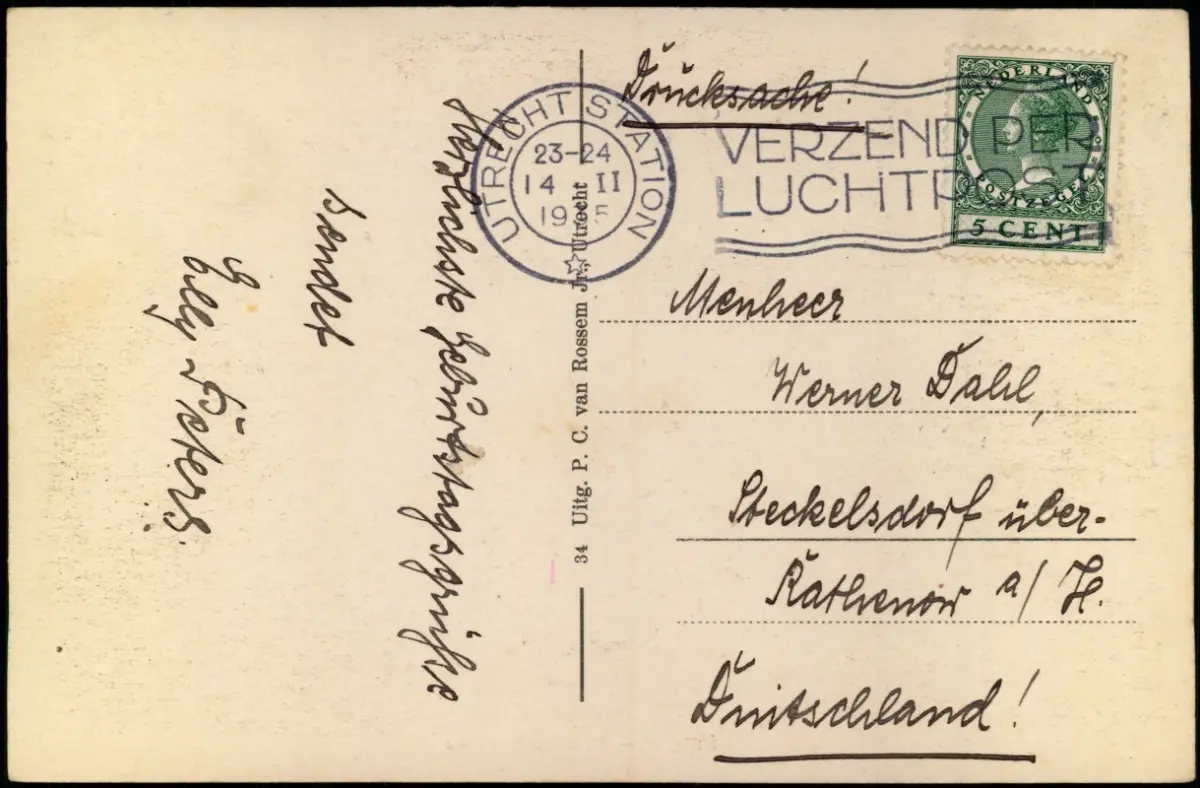 Drucksache!
UTRECHT STATION
23-24
14 II
19
VERZEND PER
LUCHTPOST
NEDERLAND
POSTZEGEL
5 CENT
Herzlichste Geburtstagsgrüße
sendet
Elly Peters.
34 Uitg. P. C. van Rossem Jr., Utrecht
Menheer
Werner Dahl,
Steckelsdorf über-
Rathenow a/H.
Duitschland!